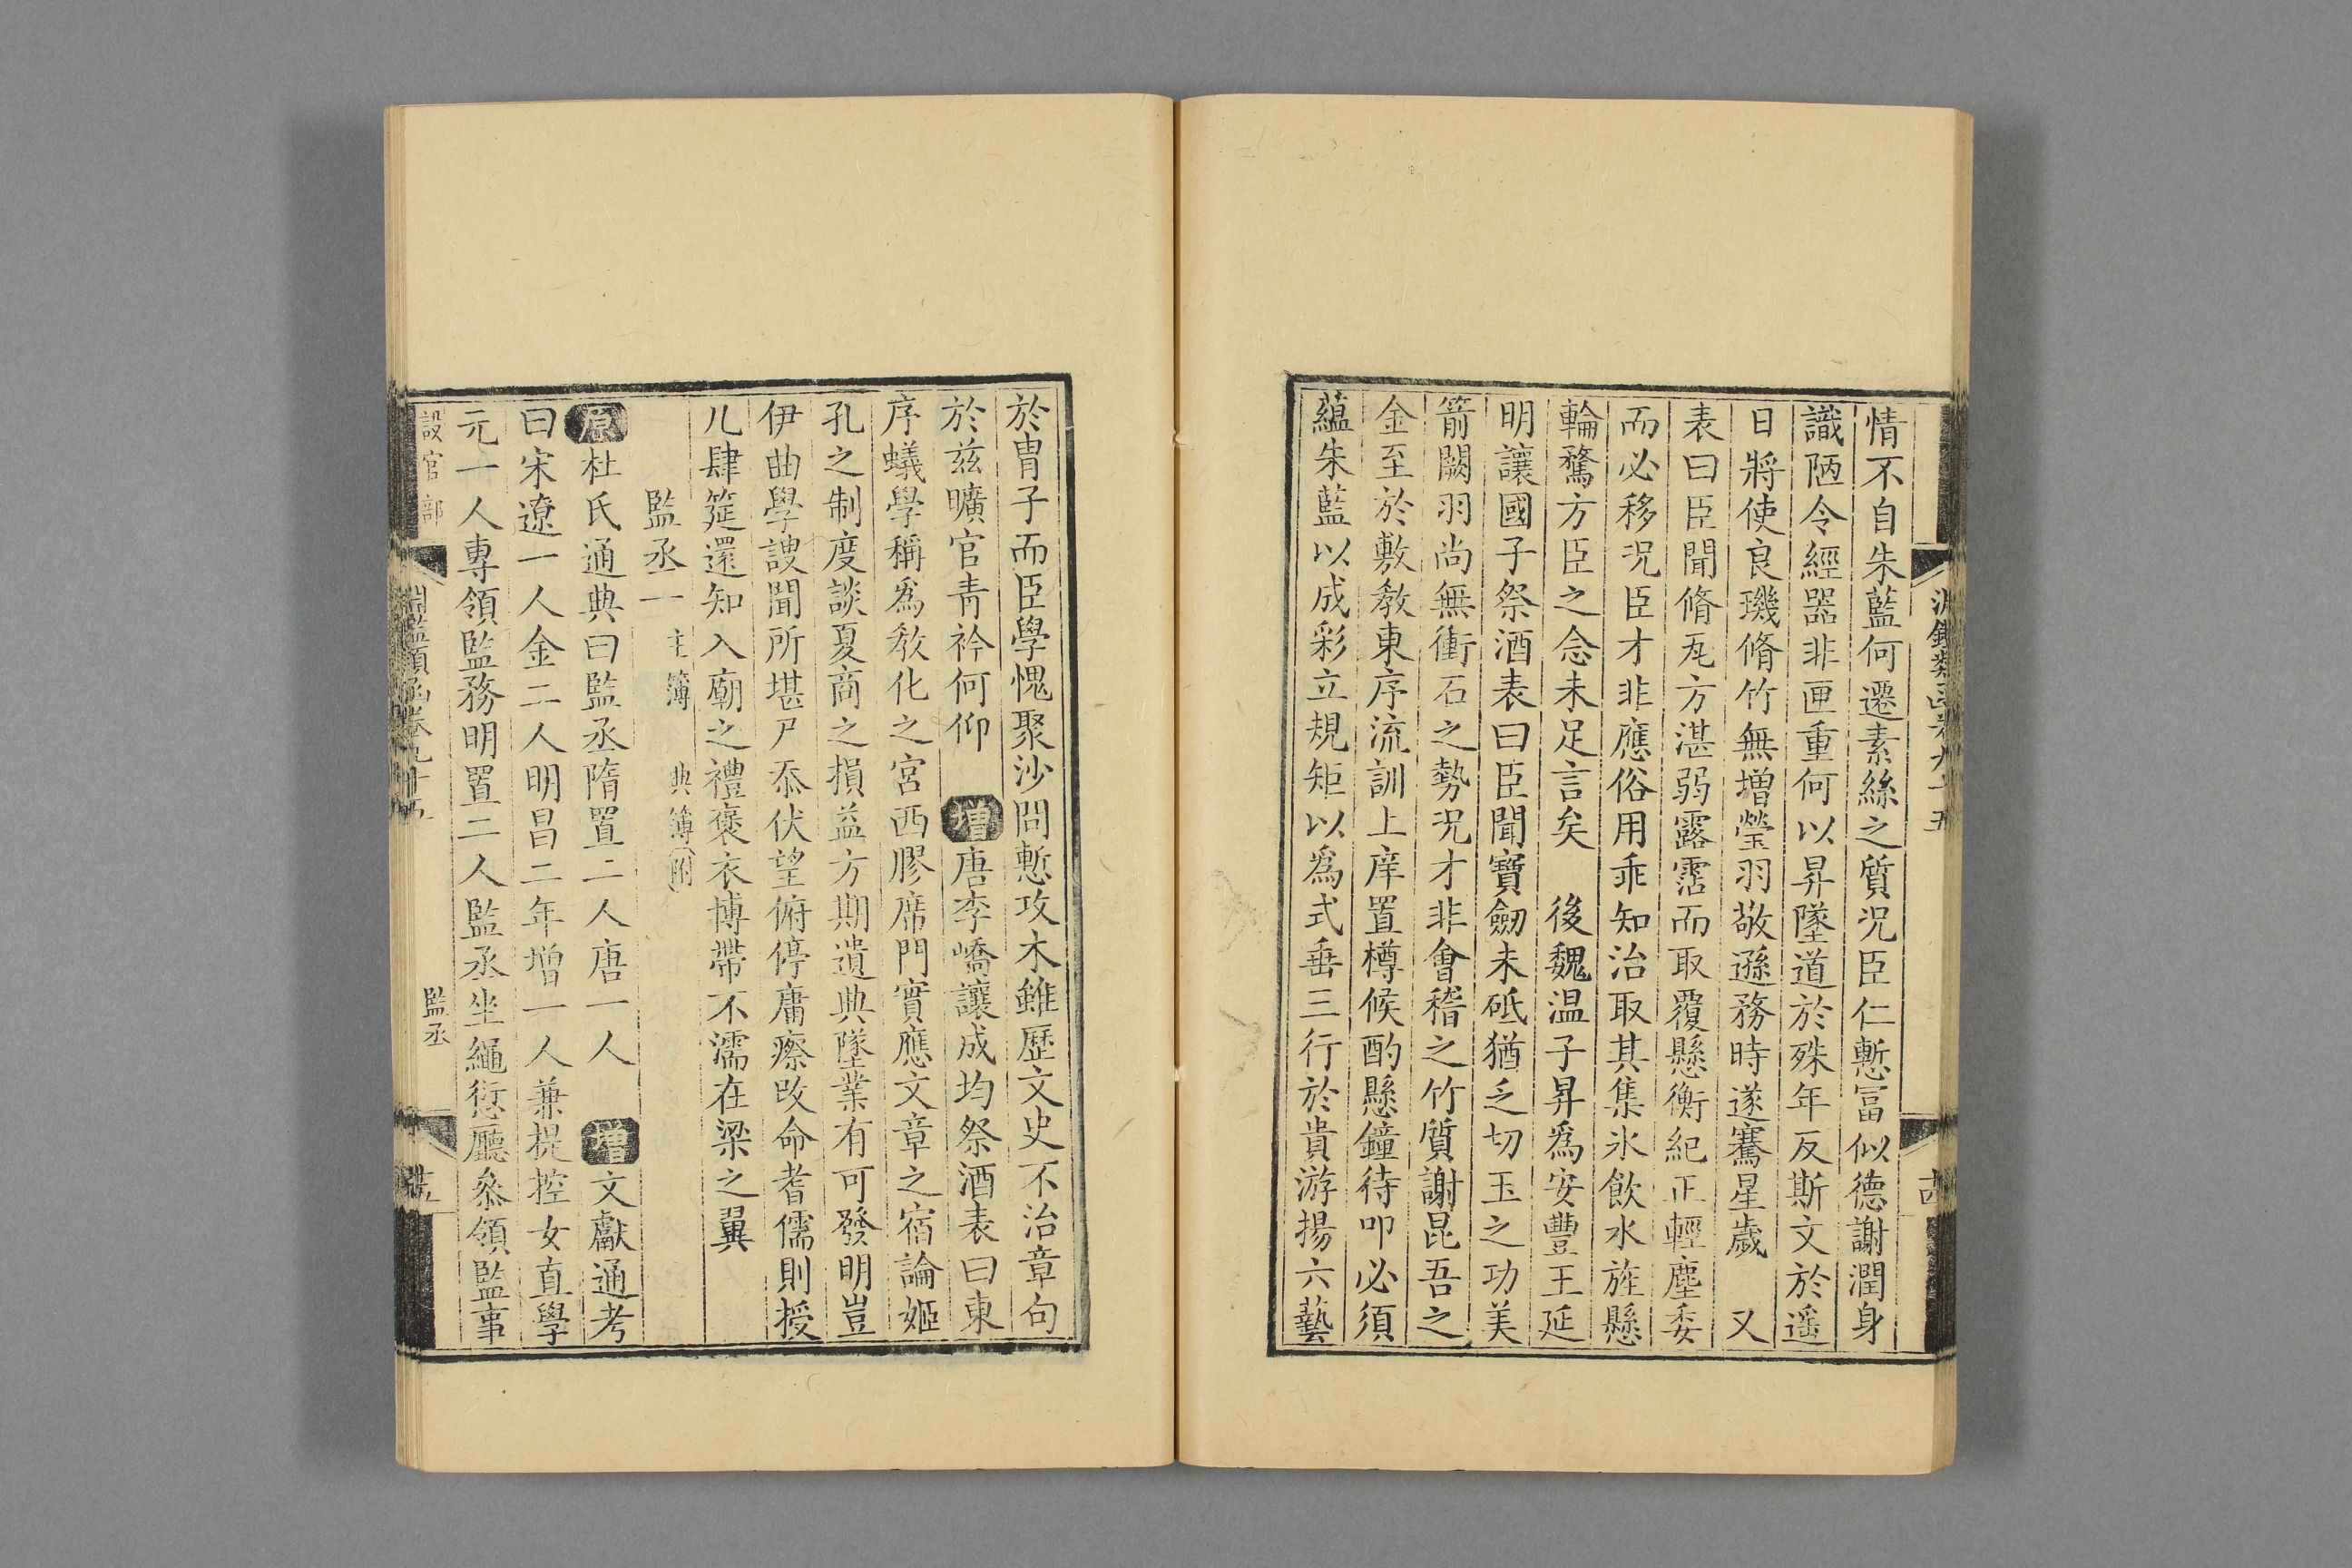 情不自朱藍何遷素絲之質況臣仁慙冨似德謝潤身
識陋令經器非匣重何以昇墜道於殊年反斯文於遥
日將使良璣脩竹無増瑩羽敬遜務時遂騫星歲　又
表曰臣聞脩瓦方湛弱露霑而取覆懸衡紀正輕塵委
而必移況臣才非應俗用乖知治取其集氷飲水旌懸
輪騖方臣之念未足言矣　後魏温子昇爲安豐王延
明讓國子祭酒表曰臣聞寶劒未砥猶乏切玉之功美
箭闕羽尚無衝石之勢況才非會稽之竹質謝昆吾之
金至於敷教東序流訓上庠置樽候酌懸鐘待叩必須
蘊朱藍以成彩立規矩以爲式垂三行於貴游揚六藝
於胄子而臣學愧聚沙問慙攻木雖歴文史不治章句
於兹曠官青衿何仰　増唐李嶠讓成均祭酒表曰東
序蟻學稱爲教化之宮西膠席門實應文章之宿論姬
孔之制度談夏商之損益方期遺典墜業有可發明豈
伊曲學謏聞所堪尸忝伏望俯停庸瘵改命耆儒則授
几肆筵還知入廟之禮褒衣博帶不濡在梁之翼
監丞一 主簿 典簿附
原杜氏通典曰監丞隋置二人唐一人　増文獻通考
曰宋遼一人金二人明昌二年増一人兼提控女直學
元一人專領監務明置二人監丞坐繩愆廳叅領監事
設官部 淵鑑類函卷九十五 監丞 十五